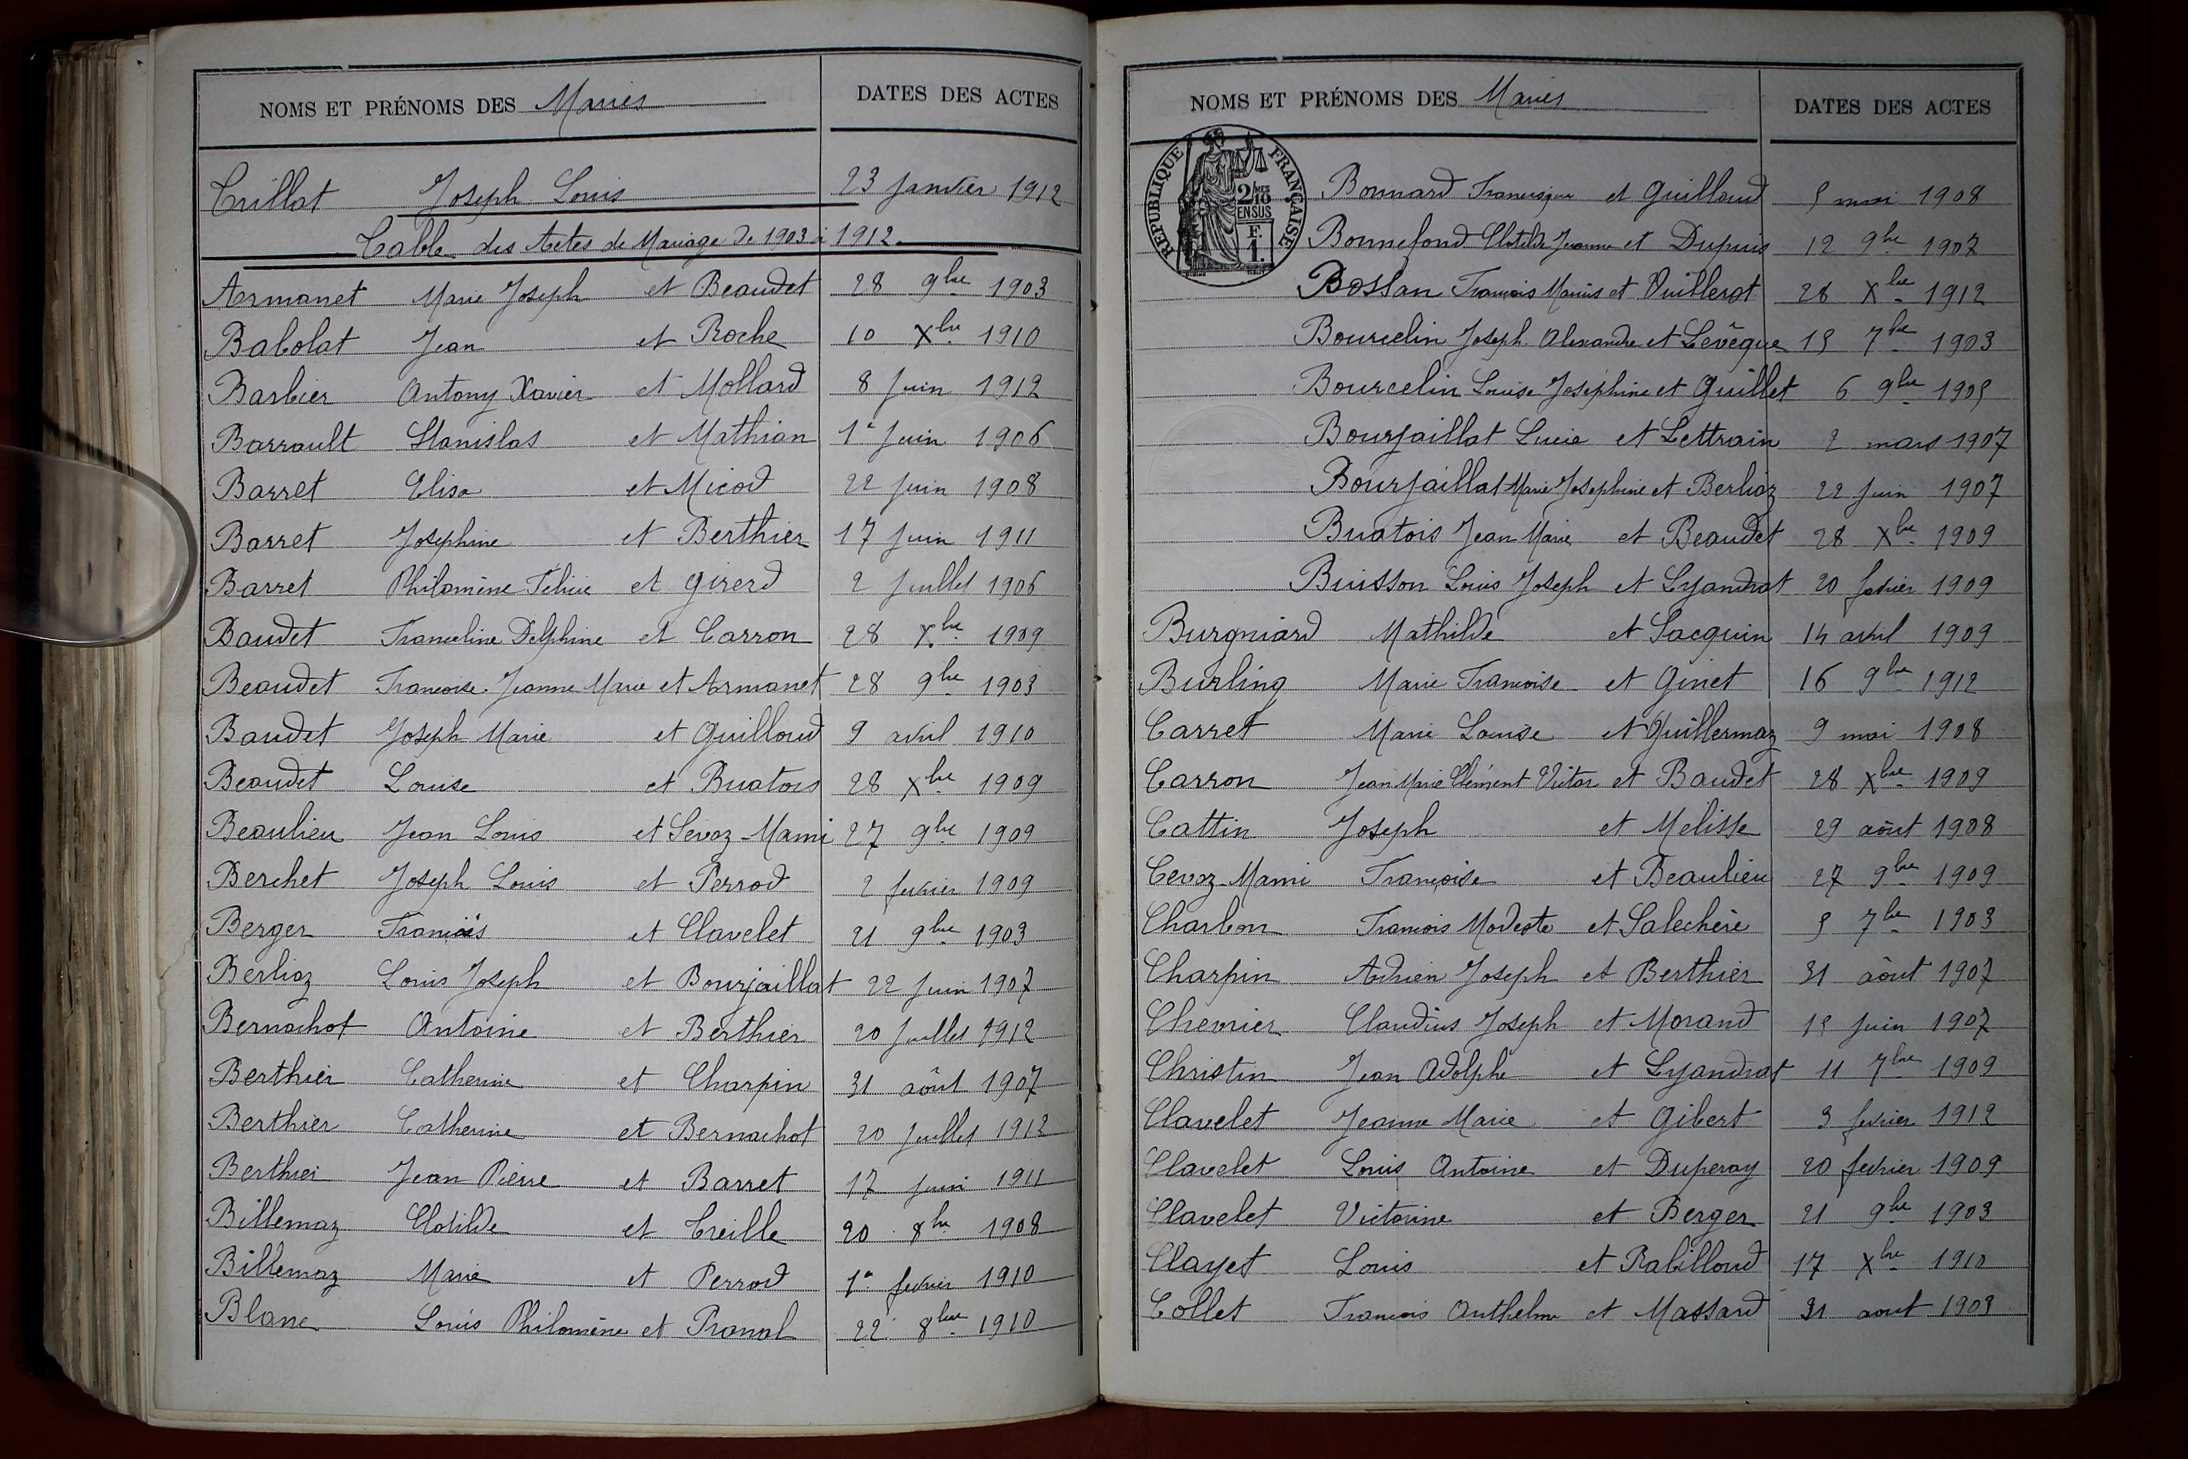 NOMS ET PRÉNOMS DES Mariés DATES DES ACTES
Trillat Joseph Louis 23 janvier 1912
Table des Actes de Mariage de 1903 à 1912.
Armanet Marie Joseph et Beaudet 28 9bre 1903
Babolat Jean et Roche 10 Xbre 1910
Barbier Antony Xavier et Mollard 8 juin 1912
Barrault Stanislas et Mathian 1er juin 1906
Barret Elisa et Micod 22 juin 1908
Barret Joséphine et Berthier 17 juin 1911
Barret Philomène Félicie et Girerd 2 juillet 1906
Baudet Franceline Delphine et Carron 28 Xbre 1909
Beaudet Francoise Jeanne Marie et Armanet 28 9bre 1903
Baudet Joseph Marie et Guilloud 9 avril 1910
Beaudet Louise et Buatois 28 Xbre 1909
Beaulieu Jean Louis et Sevoz-Mami 27 9bre 1909
Berchet Joseph Louis et Perrod 2 fevrier 1909
Berger François et Clavelet 21 9bre 1903
Berlioz Louis Joseph et Bourjaillat 22 juin 1907
Bernachot Antoine et Berthier 20 juillet 1912
Berthier Catherine et Charpin 31 aôut 1907
Berthier Catherine et Bernachot 20 juillet 1912
Berthier Jean Pierre et Barret 17 juin 1911
Billemaz Clotilde et Treille 20 8bre 1908
Billemaz Marie et Perrod 1er fevrier 1910
Blanc Louis Philomène et Pranal 22 8bre 1910
NOMS ET PRÉNOMS DES Mariés DATES DES ACTES
RÉPUBLIQUE FRANÇAISE
2/10 EN SUS
F. 1.
Bonnard Francisque et Guilloud 5 mai 1908
Bonnefond Clotilde Jeanne et Dupuis 12 9bre 1907
Bossan François Marius et Vuillerot 28 Xbre 1912
Bourcelin Joseph Alexandre et Levêque 15 7bre 1903
Bourcelin Louise Joséphine et Guillet 6 9bre 1905
Bourjaillat Lucie et Lettrain 2 mars 1907
Bourjaillat Marie Josephine et Berlioz 22 juin 1907
Buatois Jean Marie et Beaudet 28 Xbre 1909
Buisson Louis Joseph et Lyandrat 20 fevrier 1909
Burgniard Mathilde et Jacquin 14 avril 1909
Burling Marie Francoise et Ginet 16 9bre 1912
Carret Marie Louise et Guillermaz 9 mai 1908
Carron Jean Marie Clément Victor et Baudet 28 Xbre 1909
Cattin Joseph et Melisse 29 aôut 1908
Cevoz-Mami Françoise et Beaulieu 27 9bre 1909
Charbon Francois Modeste et Salechère 5 7bre 1903
Charpin Adrien Joseph et Berthier 31 aôut 1907
Chevrier Claudius Joseph et Morand 15 juin 1907
Christin Jean Adolphe et Lyandrat 11 7bre 1909
Clavelet Jeanne Marie et Gibert 3 fevrier 1912
Clavelet Louis Antoine et Duperay 20 fevrier 1909
Clavelet Victorine et Berger 21 9bre 1903
Clayet Louis et Rabilloud 17 Xbre 1910
Collet Francois Anthelme et Massard 31 aout 1903